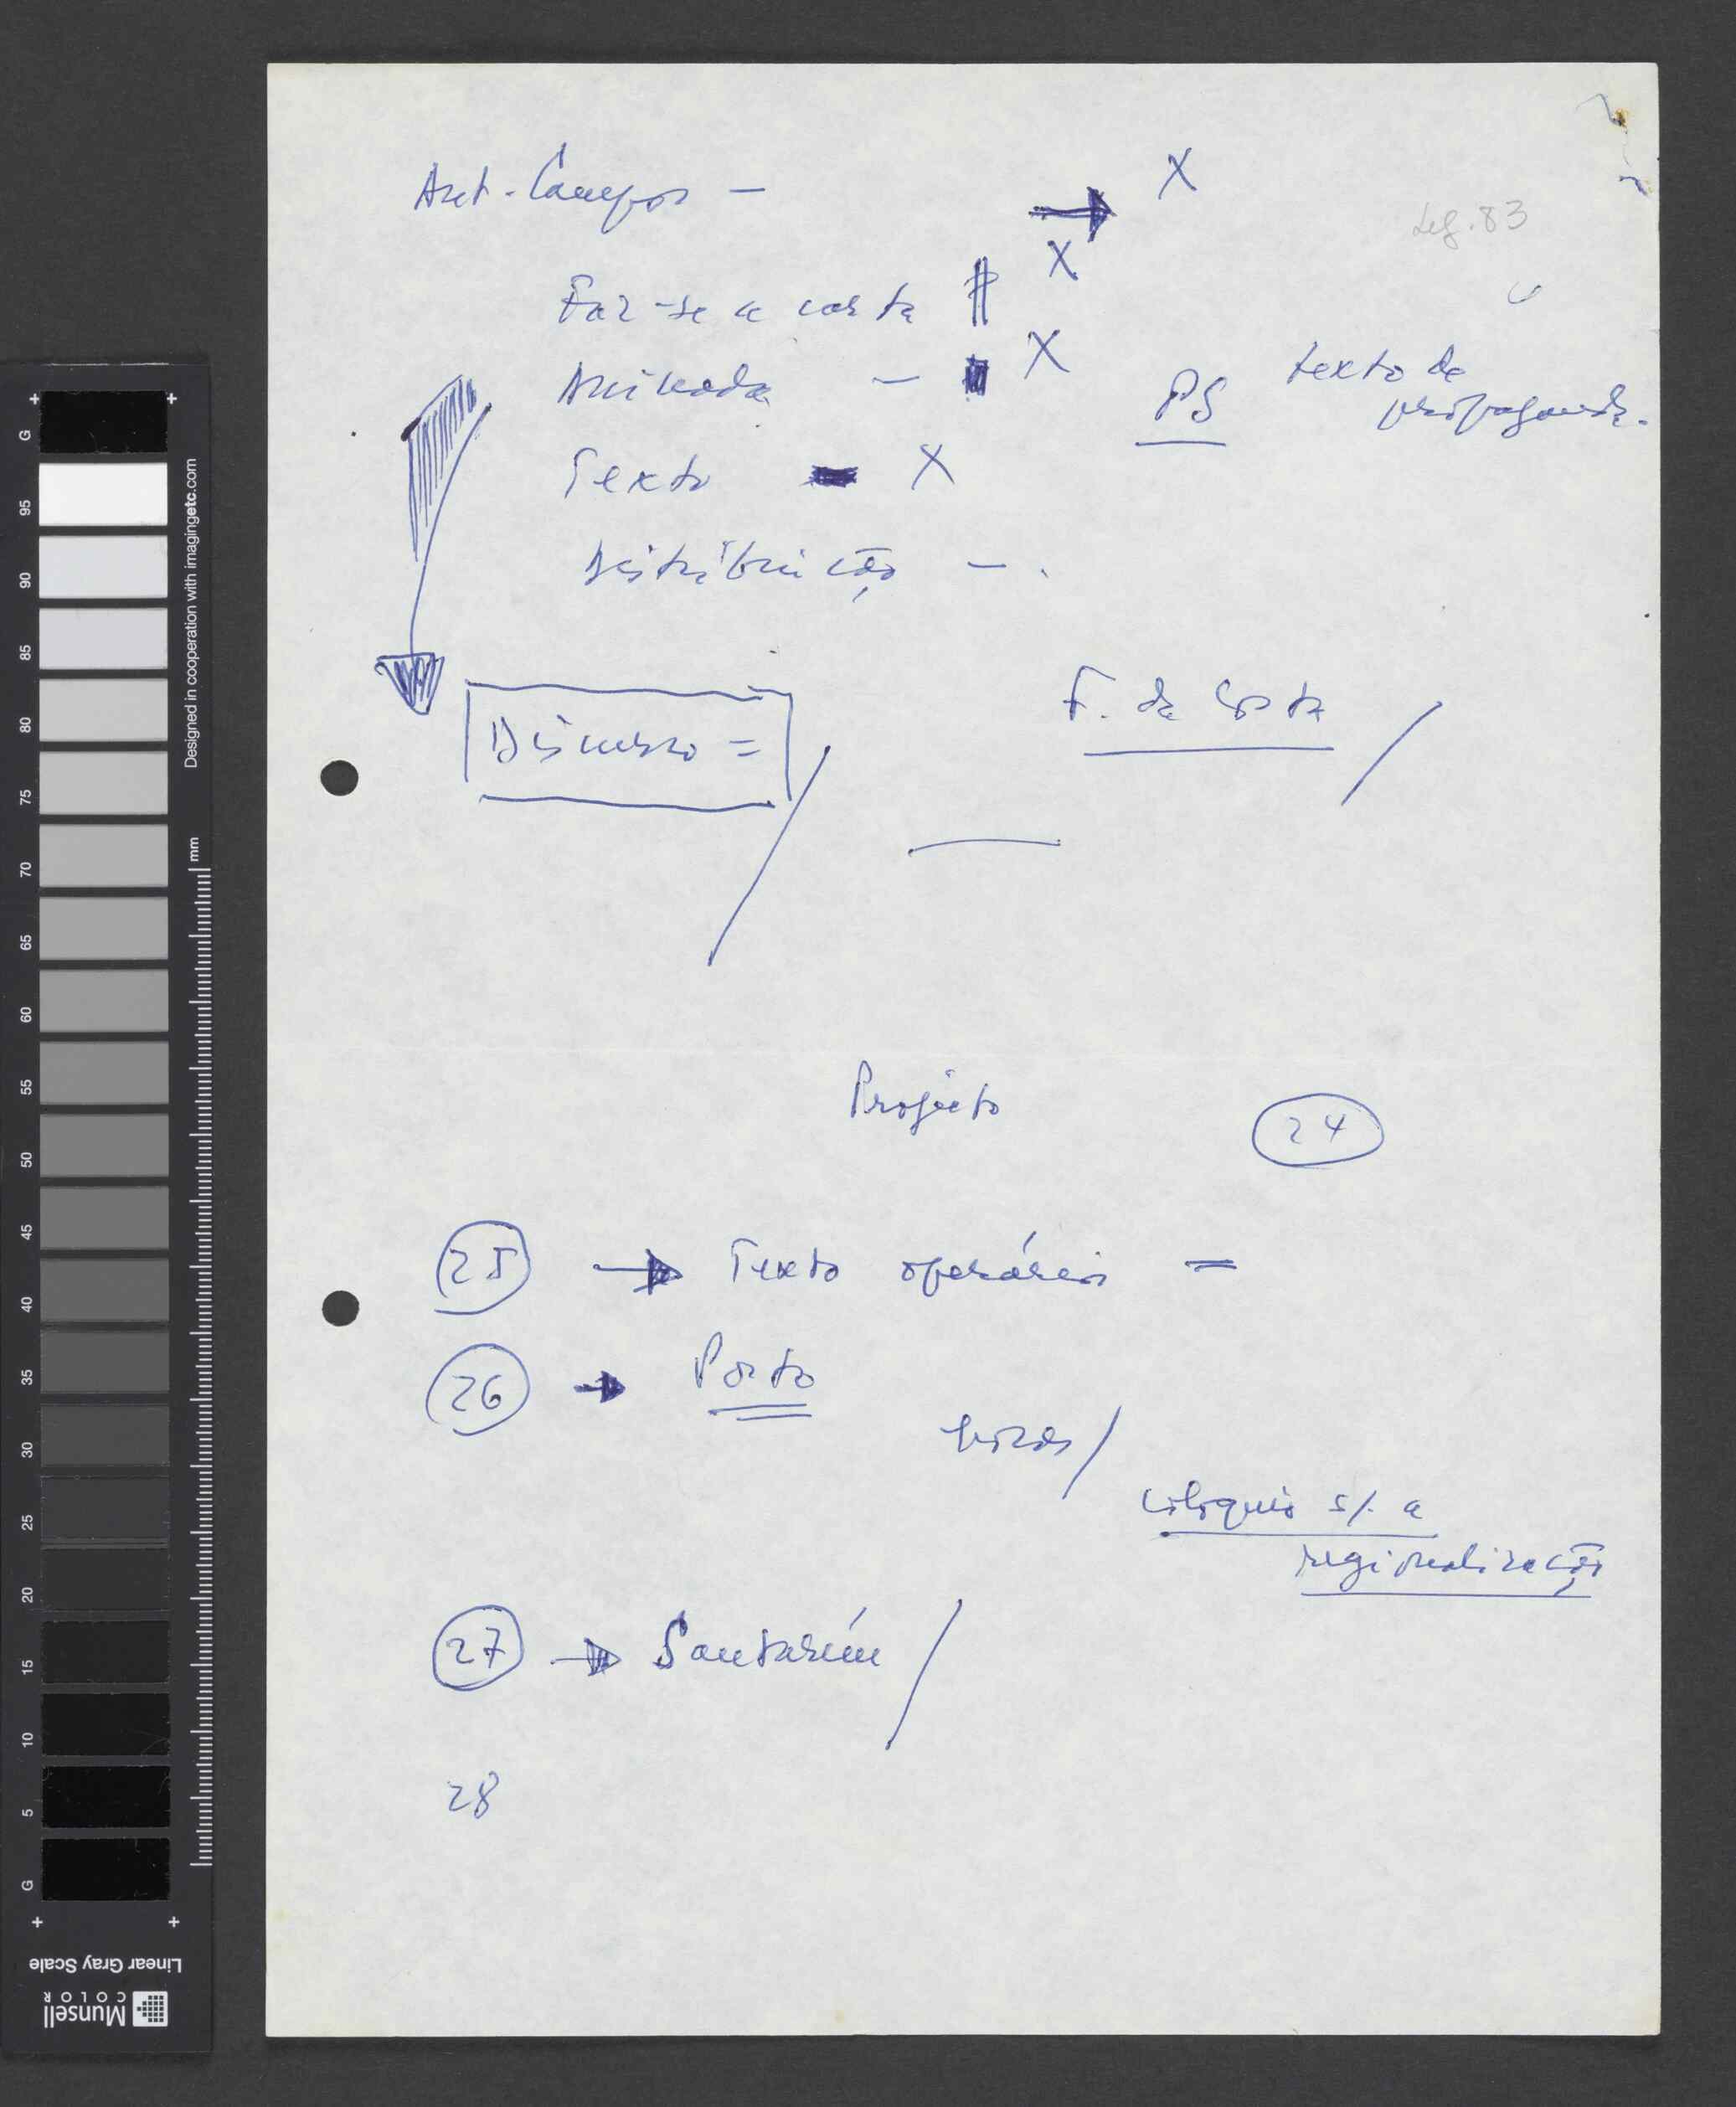 Ant. Campos — → X
Lef. 83
Faz-se a carta X
Avinada — X
PS texto de
propaganda.
Texto — X
Distribuição — .
F. da Costa /
Discurso = /
Projecto
24
25 → Texto operários =
26 → Porto
horas /
colóquio s/. a
regionalização
27 → Santarém /
28
Designed in cooperation with imagingetc.com
mm
G 95 90 85 80 75 70 65 60 55 50 45 40 35 30 25 20 15 10 5 G
Linear Gray Scale
Munsell
COLOR